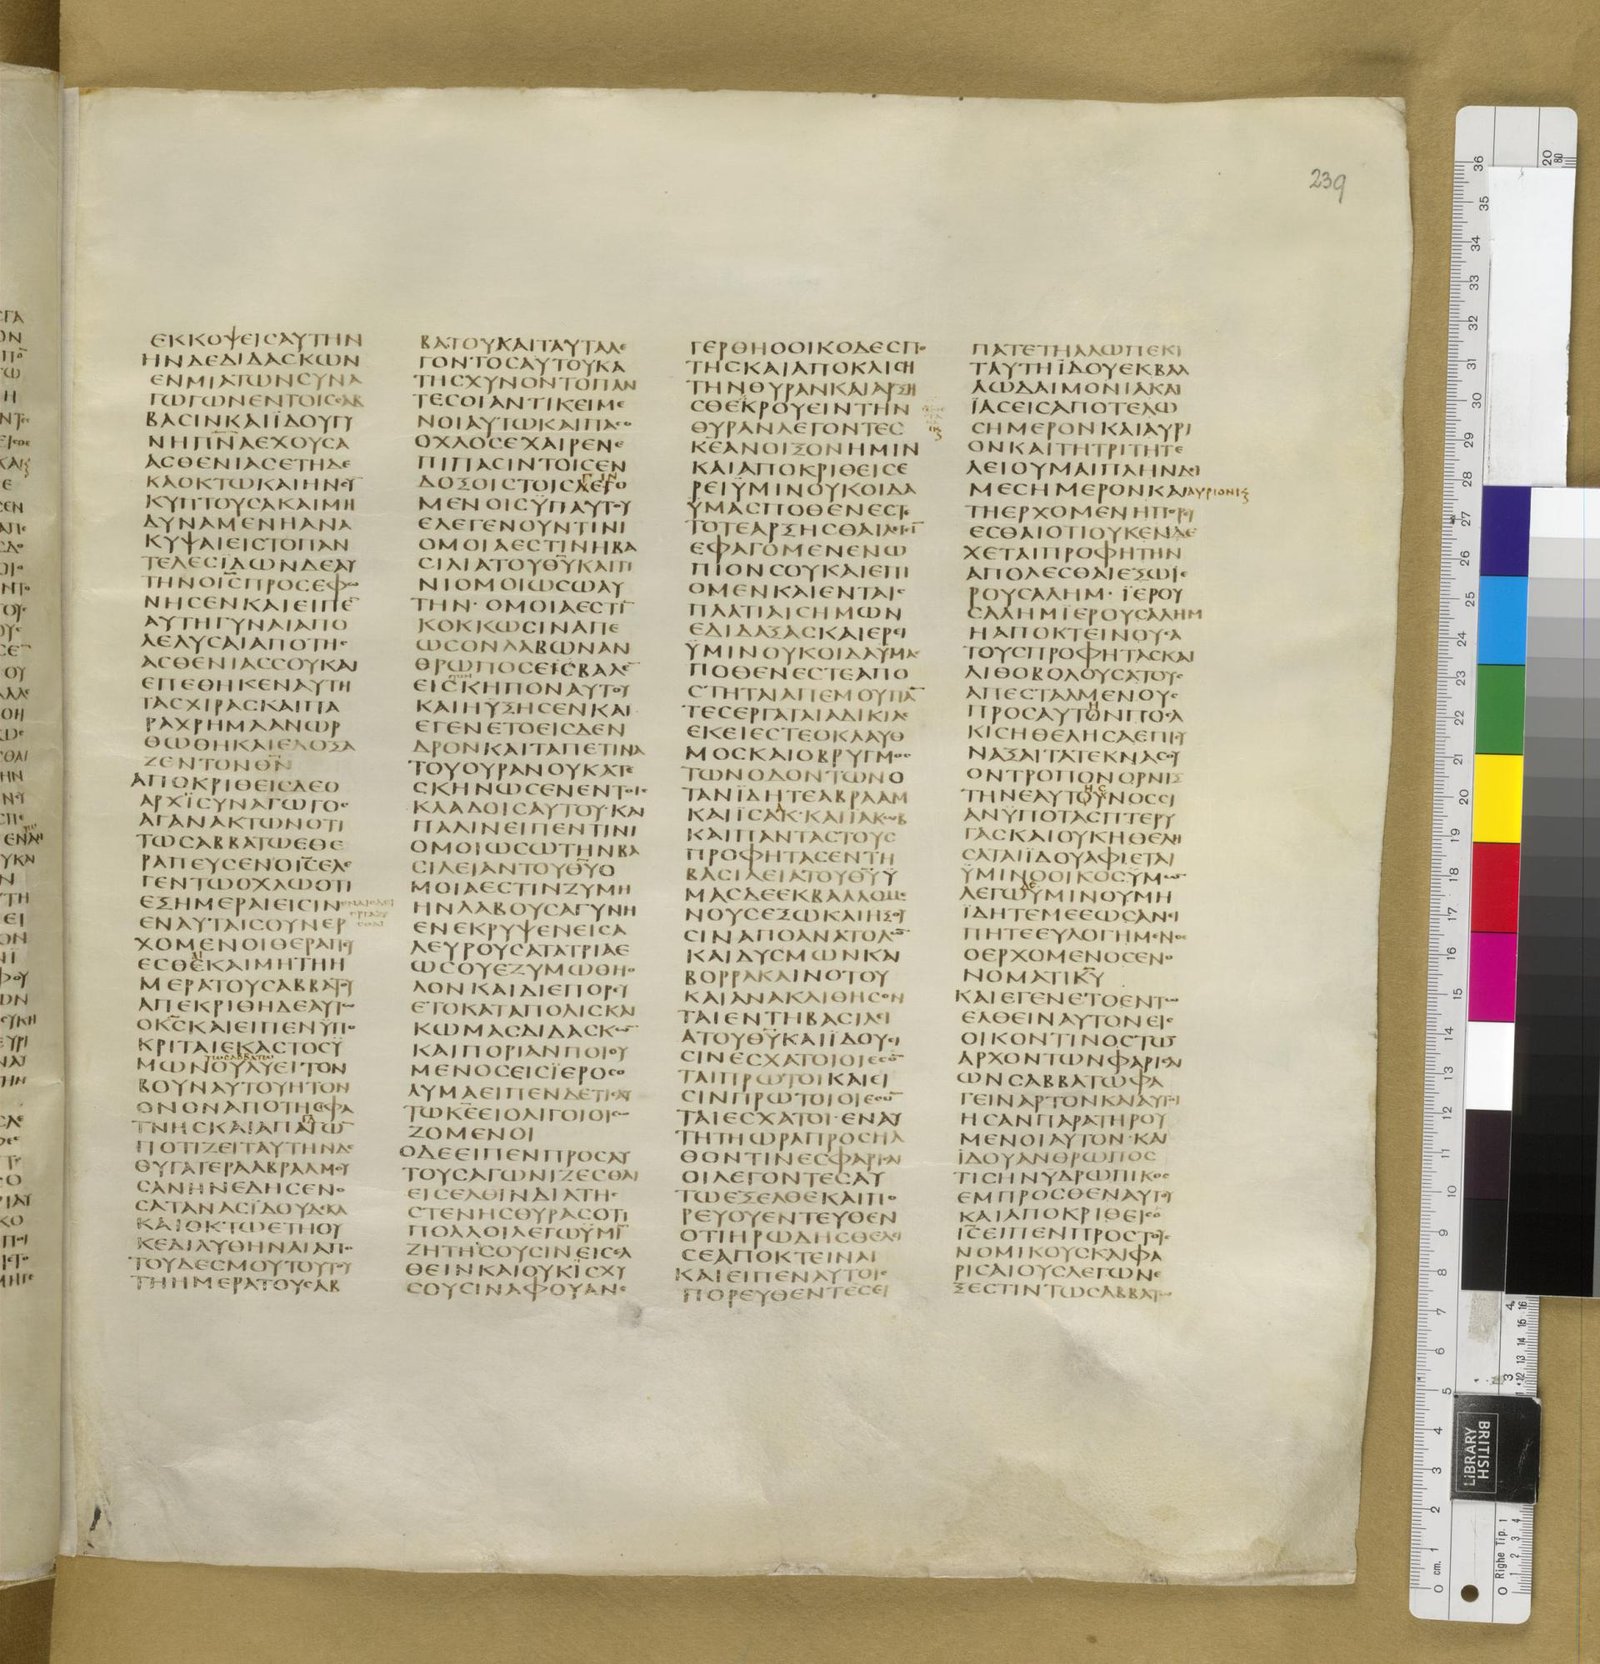 239
ΕΚΚΟΨΕΙϹΑΥΤΗΝ
ΗΝΔΕΔΙΔΑϹΚΩΝ
ΕΝΜΙΑΤΩΝϹΥΝΑ
ΓΩΓΩΝΕΝΤΟΙϹϹΑΒ
ΒΑϹΙΝΚΑΙΪΔΟΥΓΥ
ΝΗΠΝ̅ΑΕΧΟΥϹΑ
ΑϹΘΕΝΙΑϹΕΤΗΔΕ
ΚΑΟΚΤΩΚΑΙΗΝϹΥ
ΚΥΠΤΟΥϹΑΚΑΙΜΗ
ΔΥΝΑΜΕΝΗΑΝΑ
ΚΥΨΑΙΕΙϹΤΟΠΑΝ
ΤΕΛΕϹΪΔΩΝΔΕΑΥ
ΤΗΝΟΙ̅ϹΠΡΟϹΕΦΩ
ΝΗϹΕΝΚΑΙΕΙΠΕ̅
ΑΥΤΗΓΥΝΑΙΑΠΟ
ΛΕΛΥϹΑΙΑΠΟΤΗϹ
ΑϹΘΕΝΙΑϹϹΟΥΚΑΙ
ΕΠΕΘΗΚΕΝΑΥΤΗ
ΤΑϹΧΙΡΑϹΚΑΙΠΑ
ΡΑΧΡΗΜΑΑΝΩΡ
ΘΩΘΗΚΑΙΕΔΟΞΑ
ΖΕΝΤΟΝΘ̅Ν
ΑΠΟΚΡΙΘΕΙϹΔΕΟ
ΑΡΧΪϹΥΝΑΓΩΓΟϹ
ΑΓΑΝΑΚΤΩΝΟΤΙ
ΤΩϹΑΒΒΑΤΩΕΘΕ
ΡΑΠΕΥϹΕΝΟΙ̅ϹΕΛΕ
ΓΕΝΤΩΟΧΛΩΟΤΙ
ΕΞΗΜΕΡΑΙΕΙϹΙΝ
ΕΝΑΥΤΑΙϹΟΥΝΕΡ
ΧΟΜΕΝΟΙΘΕΡΑΠΕΥ
ΕϹΘΕΚΑΙΜΗΤΗΗ
ΜΕΡΑΤΟΥϹΑΒΒΑΤΟΥ
ΑΠΕΚΡΙΘΗΔΕΑΥΤΩ
ΟΚ̅ϹΚΑΙΕΙΠΕΝΫΠΟ
ΚΡΙΤΑΙΕΚΑϹΤΟϹΫ
ΜΩΝΟΥΛΥΕΙΤΟΝ
ΒΟΥΝΑΥΤΟΥΗΤΟΝ
ΟΝΟΝΑΠΟΤΗϹΦΑ
ΤΝΗϹΚΑΙΑΠΑΓΩ̅
ΠΟΤΙΖΕΙΤΑΥΤΗΝΔΕ
ΘΥΓΑΤΕΡΑΑΒΡΑΑΜΟΥ
ϹΑΝΗΝΕΔΗϹΕΝΟ
ϹΑΤΑΝΑϹΪΔΟΥΔΕΚΑ
ΚΑΙΟΚΤΩΕΤΗΟΥ
ΚΕΔΙΛΥΘΗΝΑΙΑΠΟ
ΤΟΥΔΕϹΜΟΥΤΟΥΤΟΥ
ΤΗΗΜΕΡΑΤΟΥϹΑΒ
ΒΑΤΟΥΚΑΙΤΑΥΤΑΛΕ
ΓΟΝΤΟϹΑΥΤΟΥΚΑ
ΤΗϹΧΥΝΟΝΤΟΠΑΝ
ΤΕϹΟΙΑΝΤΙΚΕΙΜΕ
ΝΟΙΑΥΤΩΚΑΙΠΑϹΟ
ΟΧΛΟϹΕΧΑΙΡΕΝΕ
ΠΙΠΑϹΙΝΤΟΙϹΕΝ
ΔΟΞΟΙϹΤΟΙϹΛΕΓΟ
ΜΕΝΟΙϹΫΠΑΥΤΟΥ
ΕΛΕΓΕΝΟΥΝΤΙΝΙ
ΟΜΟΙΑΕϹΤΙΝΗΒΑ
ϹΙΛΙΑΤΟΥΘ̅ΥΚΑΙΤΙ
ΝΙΟΜΟΙΩϹΩΑΥ
ΤΗΝ· ΟΜΟΙΑΕϹΤΙ̅
ΚΟΚΚΩϹΙΝΑΠΕ
ΩϹΟΝΛΑΒΩΝΑΝ
ΘΡΩΠΟϹΕΙϹΒΑΛΕ̅
ΕΙϹΚΗΠΟΝΑΥΤΟΥ
ΚΑΙΗΥΞΗϹΕΝΚΑΙ
ΕΓΕΝΕΤΟΕΙϹΔΕΝ
ΔΡΟΝΚΑΙΤΑΠΕΤΙΝΑ
ΤΟΥΟΥΡΑΝΟΥΚΑΤΕ
ϹΚΗΝΩϹΕΝΕΝΤΟΙϹ
ΚΛΑΔΟΙϹΑΥΤΟΥ·ΚΑΙ
ΠΑΛΙΝΕΙΠΕΝΤΙΝΙ
ΟΜΟΙΩϹΩΤΗΝΒΑ
ϹΙΛΕΙΑΝΤΟΥΘ̅ΥΟ
ΜΟΙΑΕϹΤΙΝΖΥΜΗ
ΗΝΛΑΒΟΥϹΑΓΥΝΗ
ΕΝΕΚΡΥΨΕΝΕΙϹΑ
ΛΕΥΡΟΥϹΑΤΑΤΡΙΑΕ
ΩϹΟΥΕΖΥΜΩΘΗΟ
ΛΟΝΚΑΙΔΙΕΠΟΡΕΥ
ΕΤΟΚΑΤΑΠΟΛΙϹΚΑΙ
ΚΩΜΑϹΔΙΔΑϹΚΩ̅
ΚΑΙΠΟΡΙΑΝΠΟΙΟΥ
ΜΕΝΟϹΕΙϹΪΕΡΟϹΟ
ΛΥΜΑΕΙΠΕΝΔΕΤΙϹΑΥ
ΤΩΚ̅ΕΕΙΟΛΙΓΟΙΟΙϹΩ
ΖΟΜΕΝΟΙ
ΟΔΕΕΙΠΕΝΠΡΟϹΑΥ
ΤΟΥϹΑΓΩΝΙΖΕϹΘΑΙ
ΕΙϹΕΛΘΙΝΔΙΑΤΗϹ
ϹΤΕΝΗϹΘΥΡΑϹΟΤΙ
ΠΟΛΛΟΙΛΕΓΩΫΜΙ̅
ΖΗΤΗϹΟΥϹΙΝΕΙϹΕΛ
ΘΕΙΝΚΑΙΟΥΚΪϹΧΥ
ϹΟΥϹΙΝΑΦΟΥΑΝΕ
ΓΕΡΘΗΟΟΙΚΟΔΕϹΠΟ
ΤΗϹΚΑΙΑΠΟΚΛΙϹΗ
ΤΗΝΘΥΡΑΝΚΑΙΑΡΞΗ
ϹΘΕΚΡΟΥΕΙΝΤΗΝ
ΘΥΡΑΝΛΕΓΟΝΤΕϹ
Κ̅ΕΑΝΟΙΞΟΝΗΜΙΝ
ΚΑΙΑΠΟΚΡΙΘΕΙϹΕ
ΡΕΙΫΜΙΝΟΥΚΟΙΔΑ
ΫΜΑϹΠΟΘΕΝΕϹΤΕ
ΤΟΤΕΑΡΞΗϹΘΑΙΛΕΓΙ̅
ΕΦΑΓΟΜΕΝΕΝΩ
ΠΙΟΝϹΟΥΚΑΙΕΠΙ
ΟΜΕΝΚΑΙΕΝΤΑΙϹ
ΠΛΑΤΙΑΙϹΗΜΩΝ
ΕΔΙΔΑΞΑϹΚΑΙΕΡΕΙ
ΫΜΙΝΟΥΚΟΙΔΑΫΜΑϹ
ΠΟΘΕΝΕϹΤΕΑΠΟ
ϹΤΗΤΑΙΑΠΕΜΟΥΠΑ̅
ΤΕϹΕΡΓΑΤΑΙΑΔΙΚΙΑϹ
ΕΚΕΙΕϹΤΕΟΚΛΑΥΘ
ΜΟϹΚΑΙΟΒΡΥΓΜΟϹ
ΤΩΝΟΔΟΝΤΩΝΟ
ΤΑΝΪΔΗΤΕΑΒΡΑΑΜ
ΚΑΙΪϹΑΚ·ΚΑΙΪΑΚΩΒ
ΚΑΙΠΑΝΤΑϹΤΟΥϹ
ΠΡΟΦΗΤΑϹΕΝΤΗ
ΒΑϹΙΛΕΙΑΤΟΥΘ̅ΥΫ
ΜΑϹΔΕΕΚΒΑΛΛΟΜΕ
ΝΟΥϹΕΞΩΚΑΙΗΞΟΥ
ϹΙΝΑΠΟΑΝΑΤΟΛΩ̅
ΚΑΙΔΥϹΜΩΝΚΑΙ
ΒΟΡΡΑΚΑΙΝΟΤΟΥ
ΚΑΙΑΝΑΚΛΙΘΗϹΟΝ
ΤΑΙΕΝΤΗΒΑϹΙΛΕΙ
ΑΤΟΥΘ̅ΥΚΑΙΪΔΟΥΕΙ
ϹΙΝΕϹΧΑΤΟΙΟΙΕϹΟ̅
ΤΑΙΠΡΩΤΟΙΚΑΙΕΙ
ϹΙΝΠΡΩΤΟΙΟΙΕϹΟ̅
ΤΑΙΕϹΧΑΤΟΙ·ΕΝΑΥ
ΤΗΤΗΩΡΑΠΡΟϹΗΛ
ΘΟΝΤΙΝΕϹΦΑΡΙϹΑΙ
ΟΙΛΕΓΟΝΤΕϹΑΥ
ΤΩΕΞΕΛΘΕΚΑΙΠΟ
ΡΕΥΟΥΕΝΤΕΥΘΕΝ
ΟΤΙΗΡΩΔΗϹΘΕΛΕΙ
ϹΕΑΠΟΚΤΕΙΝΑΙ
ΚΑΙΕΙΠΕΝΑΥΤΟΙϹ
ΠΟΡΕΥΘΕΝΤΕϹΕΙ
ΠΑΤΕΤΗΑΛΩΠΕΚΙ
ΤΑΥΤΗΪΔΟΥΕΚΒΑΛ
ΛΩΔΑΙΜΟΝΙΑΚΑΙ
ΪΑϹΕΙϹΑΠΟΤΕΛΩ
ϹΗΜΕΡΟΝΚΑΙΑΥΡΙ
ΟΝΚΑΙΤΗΤΡΙΤΗΤΕ
ΛΕΙΟΥΜΑΙΠΛΗΝΔΕΙ
ΜΕϹΗΜΕΡΟΝΚΑΙΑΥΡΙΟΝΚϚ
ΤΗΕΡΧΟΜΕΝΗΠΟΡΕΥ
ΕϹΘΑΙΟΤΙΟΥΚΕΝΔΕ
ΧΕΤΑΙΠΡΟΦΗΤΗΝ
ΑΠΟΛΕϹΘΑΙΕΞΩΪΕ
ΡΟΥϹΑΛΗΜ· ΪΕΡΟΥ
ϹΑΛΗΜΪΕΡΟΥϹΑΛΗΜ
ΗΑΠΟΚΤΕΙΝΟΥϹΑ
ΤΟΥϹΠΡΟΦΗΤΑϹΚΑΙ
ΛΙΘΟΒΟΛΟΥϹΑΤΟΥϹ
ΑΠΕϹΤΑΛΜΕΝΟΥϹ
ΠΡΟϹΑΥΤΟΝΠΟϹΑ
ΚΙϹΗΘΕΛΗϹΑΕΠΙϹΥ
ΝΑΞΑΙΤΑΤΕΚΝΑϹΟΥ
ΟΝΤΡΟΠΟΝΟΡΝΙΞ
ΤΗΝΕΑΥΤΟΥΝΟϹϹΙ
ΑΝΫΠΟΤΑϹΠΤΕΡΥ
ΓΑϹΚΑΙΟΥΚΗΘΕΛΗ
ϹΑΤΑΙΪΔΟΥΑΦΙΕΤΑΙ
ΫΜΙΝΟΟΙΚΟϹΫΜΩ̅
ΛΕΓΩΫΜΙΝΟΥΜΗ
ΪΔΗΤΕΜΕΕΩϹΑΝΕΙ
ΠΗΤΕΕΥΛΟΓΗΜΕΝΟϹ
ΟΕΡΧΟΜΕΝΟϹΕΝΟ
ΝΟΜΑΤΙΚ̅Υ
ΚΑΙΕΓΕΝΕΤΟΕΝΤΩ
ΕΛΘΕΙΝΑΥΤΟΝΕΙϹ
ΟΙΚΟΝΤΙΝΟϹΤΩ̅
ΑΡΧΟΝΤΩΝΦΑΡΙϹΑΙ
ΩΝϹΑΒΒΑΤΩΦΑ
ΓΕΙΝΑΡΤΟΝΚΑΙΑΥΤΟΙ
ΗϹΑΝΠΑΡΑΤΗΡΟΥ
ΜΕΝΟΙΑΥΤΟΝ·ΚΑΙ
ΪΔΟΥΑΝΘΡΩΠΟϹ
ΤΙϹΗΝΥΔΡΩΠΙΚΟϹ
ΕΜΠΡΟϹΘΕΝΑΥΤΟΥ
ΚΑΙΑΠΟΚΡΙΘΕΙϹΟ
Ι̅ϹΕΙΠΕΝΠΡΟϹΤΟΥϹ
ΝΟΜΙΚΟΥϹΚΑΙΦΑ
ΡΙϹΑΙΟΥϹΛΕΓΩΝΕ
ΞΕϹΤΙΝΤΩϹΑΒΒΑΤΩ
BRITISH
LIBRARY